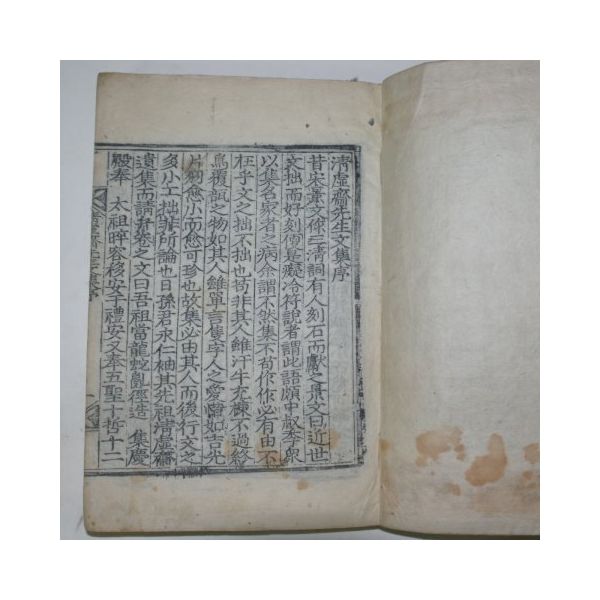 清虛齋先生文集序
昔宋景文條三淸詞有人刻石而獻之景文曰近世
文拙而好刻便是癡冷符說者謂此語頗中叔季衆
以集名家者之病余謂不然集不苟作作必有由不
在乎文之拙不拙也苟非其人雖汗牛充棟不過終
爲覆瓿之物如其人雖單言隻字人之愛惜如吉光
片羽愈小而愈可珍也故集必由其人而後行文之
多小工拙非所論也日孫君永仁袖其先祖淸虛齋
遺集而請弁卷之文曰吾祖當龍蛇亂徑造 集慶
殿奉 太祖晬容移安于禮安又奉五聖十哲十二